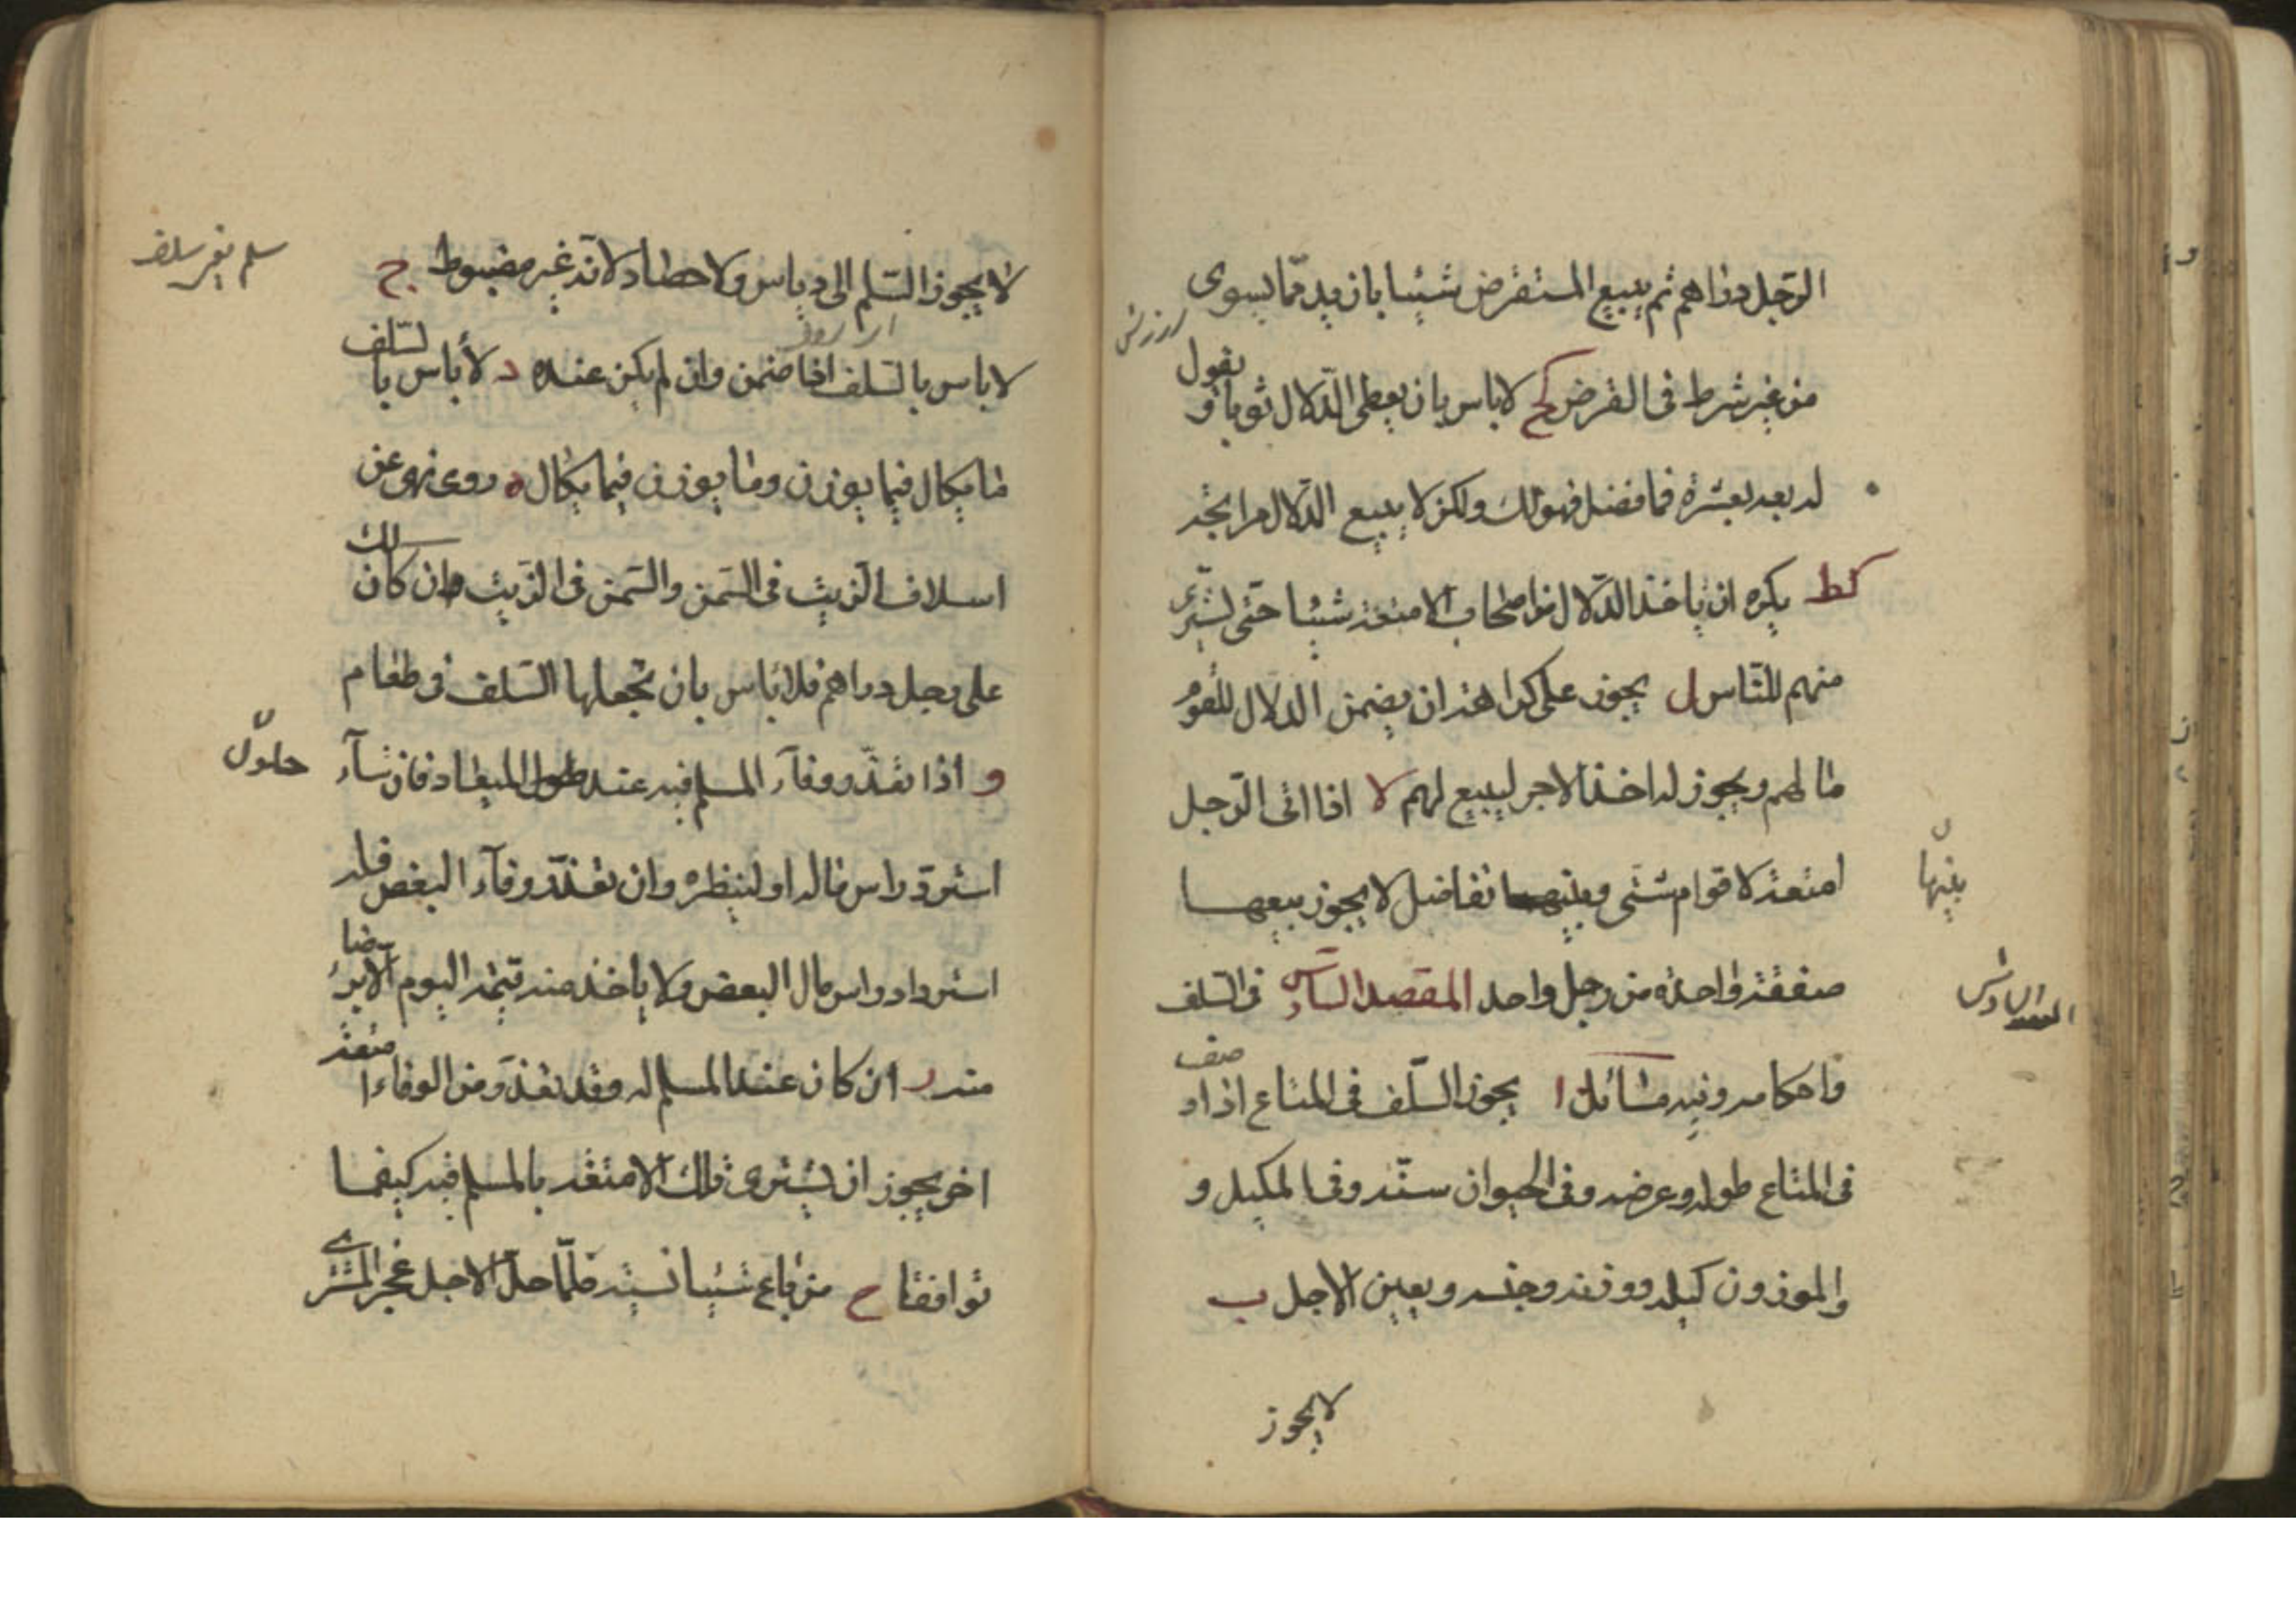 الرّجل دراهم ثم يبيع المستقرض شيئا بازيد ممّا يسوى
من غير شرط فى القرض كح لا باس بان يعطى الدّلال ثوبا و يقول
له بعه بعشرة فما فضل فهو لك ولكن لا يبيع الدّلال مرابحة
كط يكره ان ياخذ الدّلال من اصحاب الامتعة شيئا حتّى يشترى
منهم للنّاس ل يجوز على كراهة ان يضمن الدلال للقوم
مالهم ويجوز له اخذ الاجر ليبيع لهم لا اذا اتى الرّجل
امتعة لاقوام شتّى وبينهما تفاضل لا يجوز بيعها
بينها
صفقة واحدة من رجل واحد المقصد السّادس فى السّلف
المقصد السادس
واحكامه وفيه مسائل ا يجوز السّلف فى المتاع اذا وصف
فى المتاع طوله وعرضه وفى الحيوان سنّه وفى المكيل و
والموزون كيله ووزنه وجنسه ويعين الاجل ب
لا يجوز
لا يجوز السّلم الى دياس ولا حصاد لانّه غير مضبوط ج
سلم يعنى سلف
لا باس بالسّلف اذا ضمن وان لم يكن عنده د لا باس بالسّلف
ما يكال فيما يوزن وما يوزن فيما يكال ه روى نهى عن
اسلاف الزّيت فى السّمن والسّمن فى الزّيت وان كان لك
على رجل دراهم فلا باس بان تجعلها السّلف فى طعام
و اذا تعذّر وفاء المسلم فيه عند حلول الميعاد فان شآء
حلول
استردّ راس ماله او لينظره وان تعذّر وفآء البعض فله
استرداد راس مال البعض ولا ياخذ منه قيمة اليوم الّا برضا
منه ز ان كان عند المسلم له وقد تعذّر من الوفاء امتعة
اخر يجوز ان يشترى تلك الامتعة بالمسلم فيه كيفما
توافقا ح من باع شيئا نسية فلمّا حلّ الاجل عجز المشترى